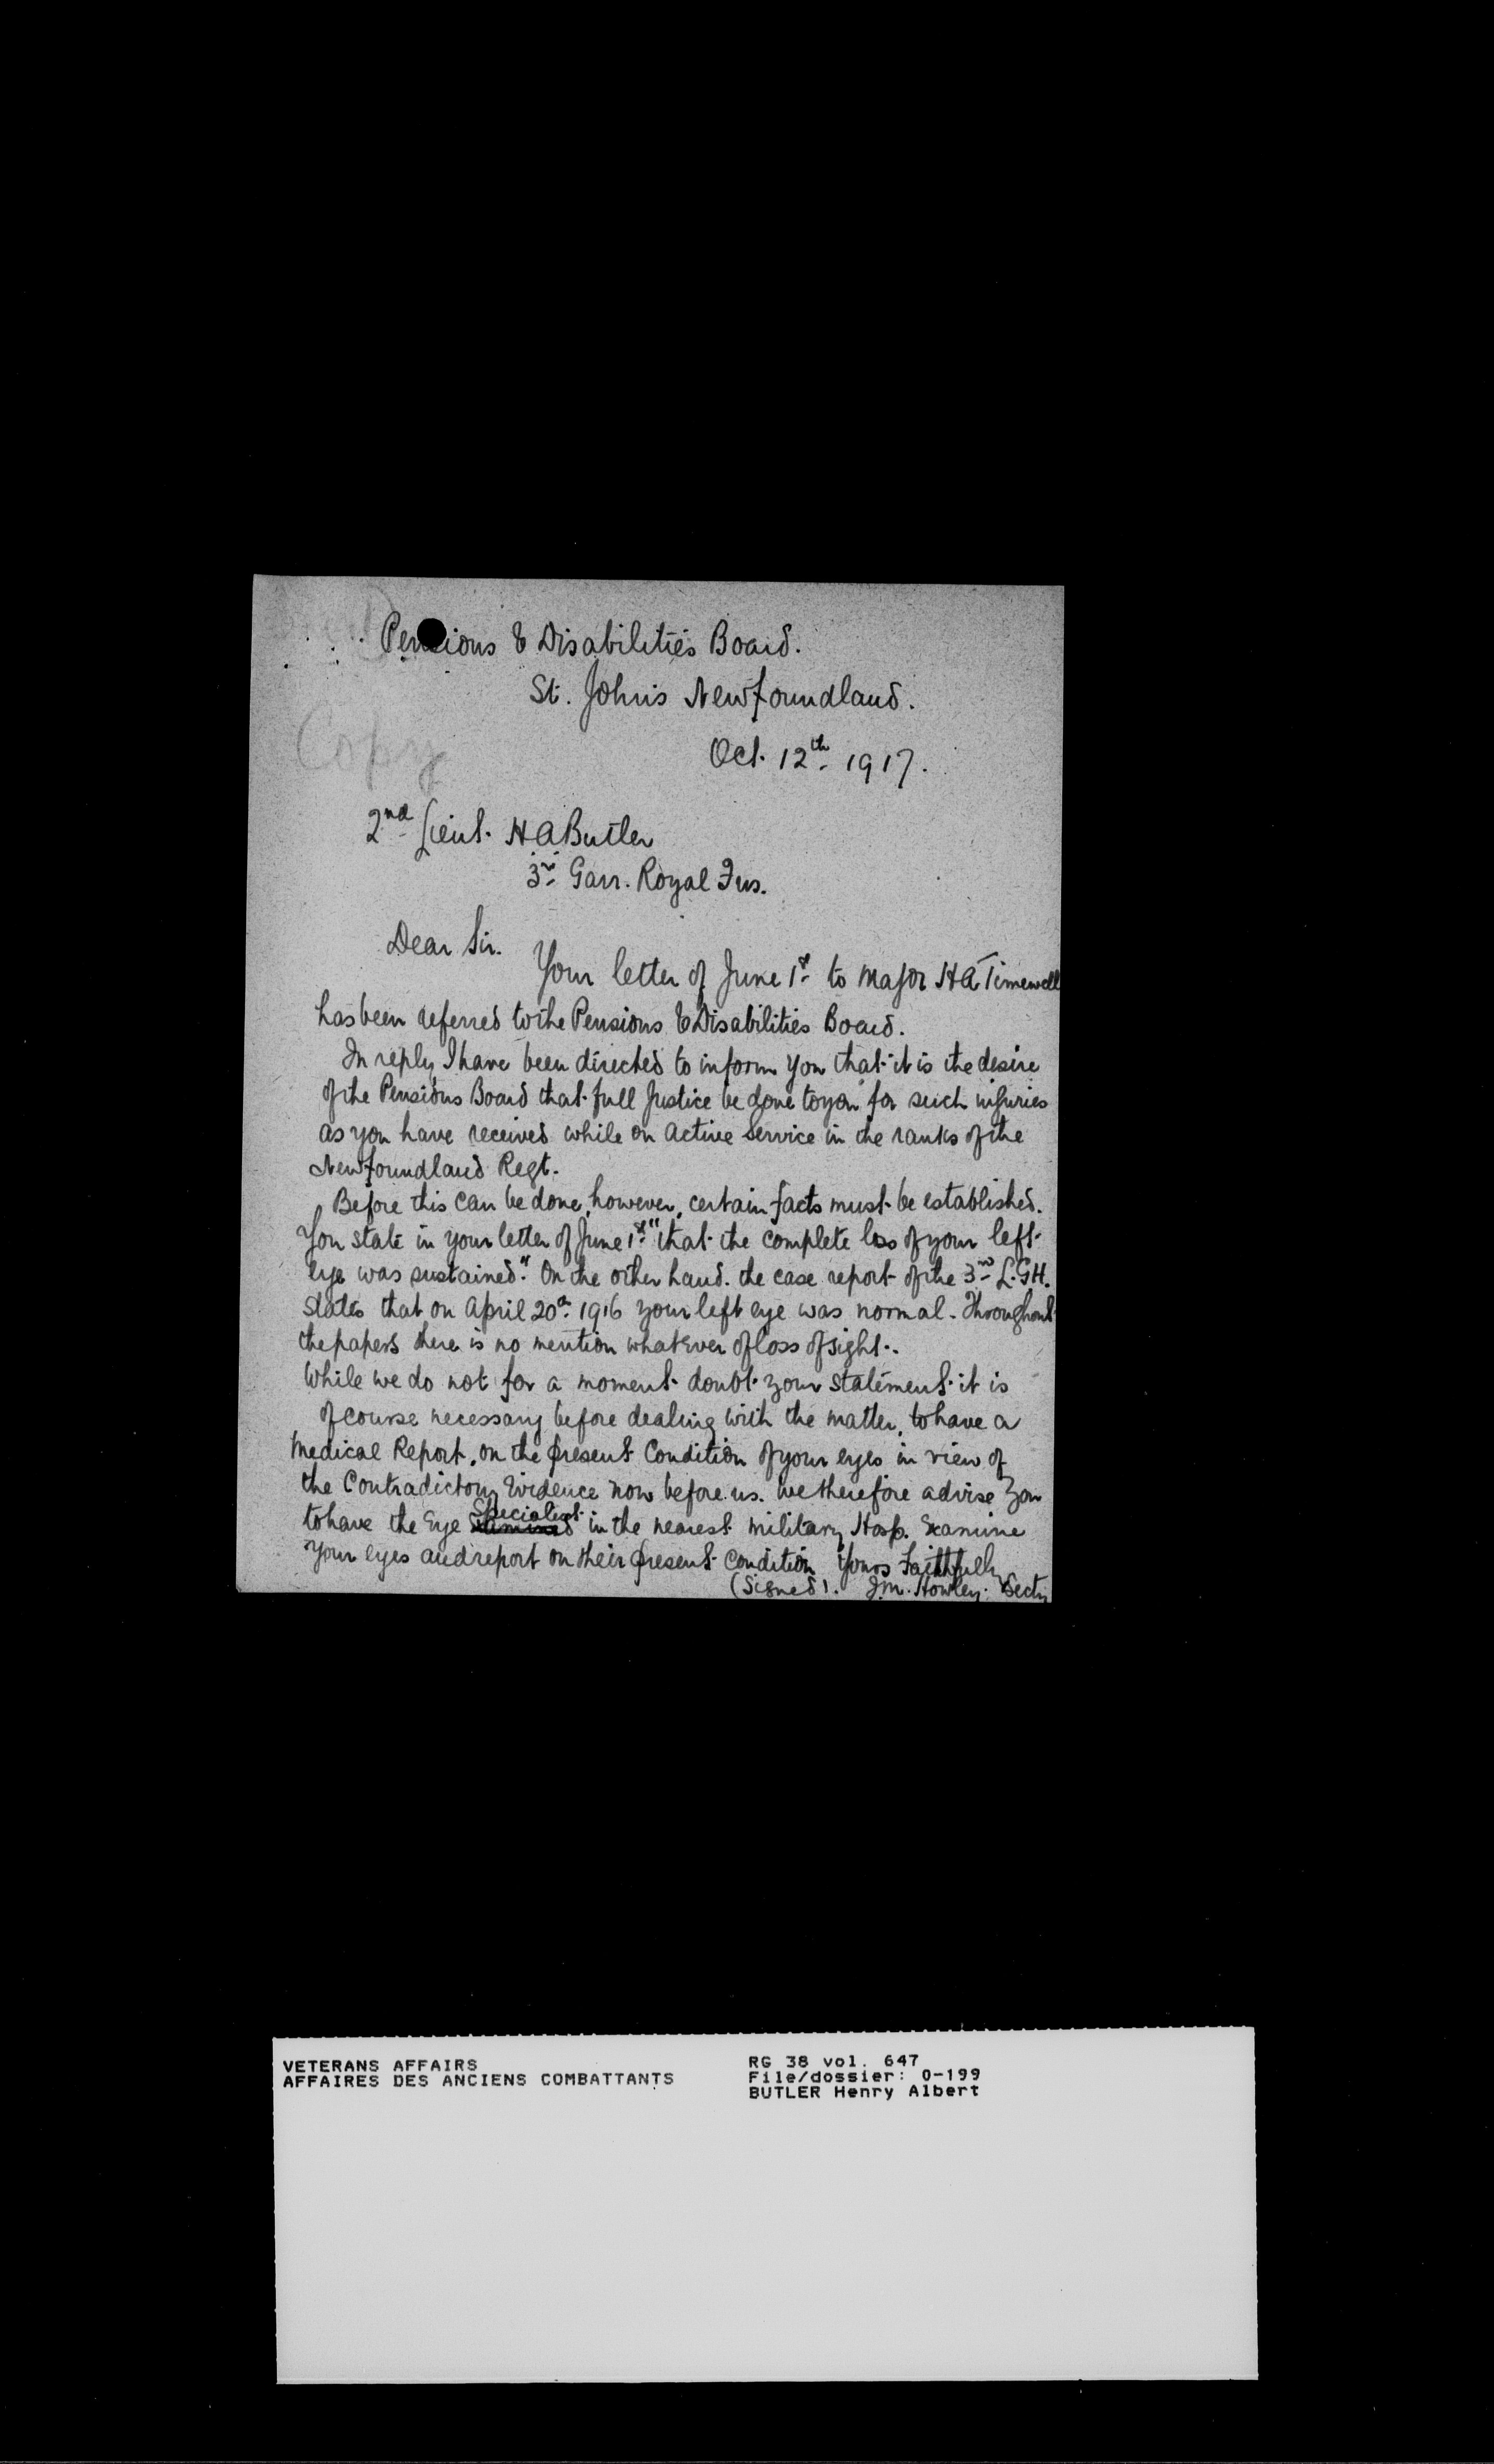 Pensions & Disabilities Board.
St. John's Newfoundland.
Copy
Oct. 12th 1917.
2nd Lieut. H A Butler
3rd Garr. Royal Fus.
Dear Sir.
Your letter of June 1st to Major H A Timewell
has been referred to the Pensions & Disabilities Board.
In reply, I have been directed to inform you that it is the desire
of the Pensions Board that full Justice be done to you for such injuries
as you have received while on Active Service in the ranks of the
Newfoundland Regt.
Before this can be done, however, certain facts must be established.
You state in your letter of June 1st "that the complete loss of your left
eye was sustained." On the other hand. the case report of the 3rd L.G.H.
states that on April 20th 1916 your left eye was normal. Throughout
the papers there is no mention whatever of loss of sight.
While we do not for a moment doubt your statement it is
of course necessary before dealing with the matter, to have a
Medical Report, on the present Condition of your eyes in view of
the Contradictory Evidence now before us. We therefore advise you
to have the Eye Specialist in the nearest military Hosp. Examine
your eyes and report on their present Condition Yours Faithfully
(Signed). J.M. Howley. Secty
VETERANS AFFAIRS
AFFAIRES DES ANCIENS COMBATTANTS
RG 38 vol. 647
File/dossier: 0-199
BUTLER Henry Albert